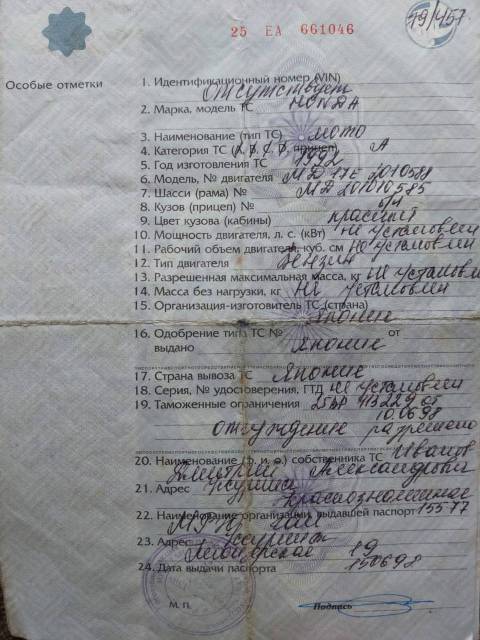 25 ЕА 661046
19/457
Особые отметки
1. Идентификационный номер (VIN)
отсутствует
2. Марка, модель ТС HONDA
3. Наименование (тип ТС) мото
4. Категория ТС (A, B, C, D, прицеп) А
5. Год изготовления ТС 1992
6. Модель, № двигателя МД 17Е 2010588
7. Шасси (рама) № МД 201010585
8. Кузов (прицеп) № б/н
9. Цвет кузова (кабины) красный
10. Мощность двигателя, л. с. (кВт) не установлен
11. Рабочий объем двигателя, куб. см не установлен
12. Тип двигателя бензин
13. Разрешенная максимальная масса, кг не установлен
14. Масса без нагрузки, кг не установлен
15. Организация-изготовитель ТС (страна)
Япония
16. Одобрение типа ТС № от
выдано Япония
17. Страна вывоза ТС Япония
18. Серия, № удостоверения, ГТД не установлен
19. Таможенные ограничения 413229 от
10.06.98
отчуждение разрешено
20. Наименование (ф. и. о.) собственника ТС Иванов
Александрович
21. Адрес Уссурийск
Краснознаменная
22. Наименование организации, выдавшей паспорт 15577
23. Адрес Уссурийск
19
24. Дата выдачи паспорта 150698
М. П.
Подпись